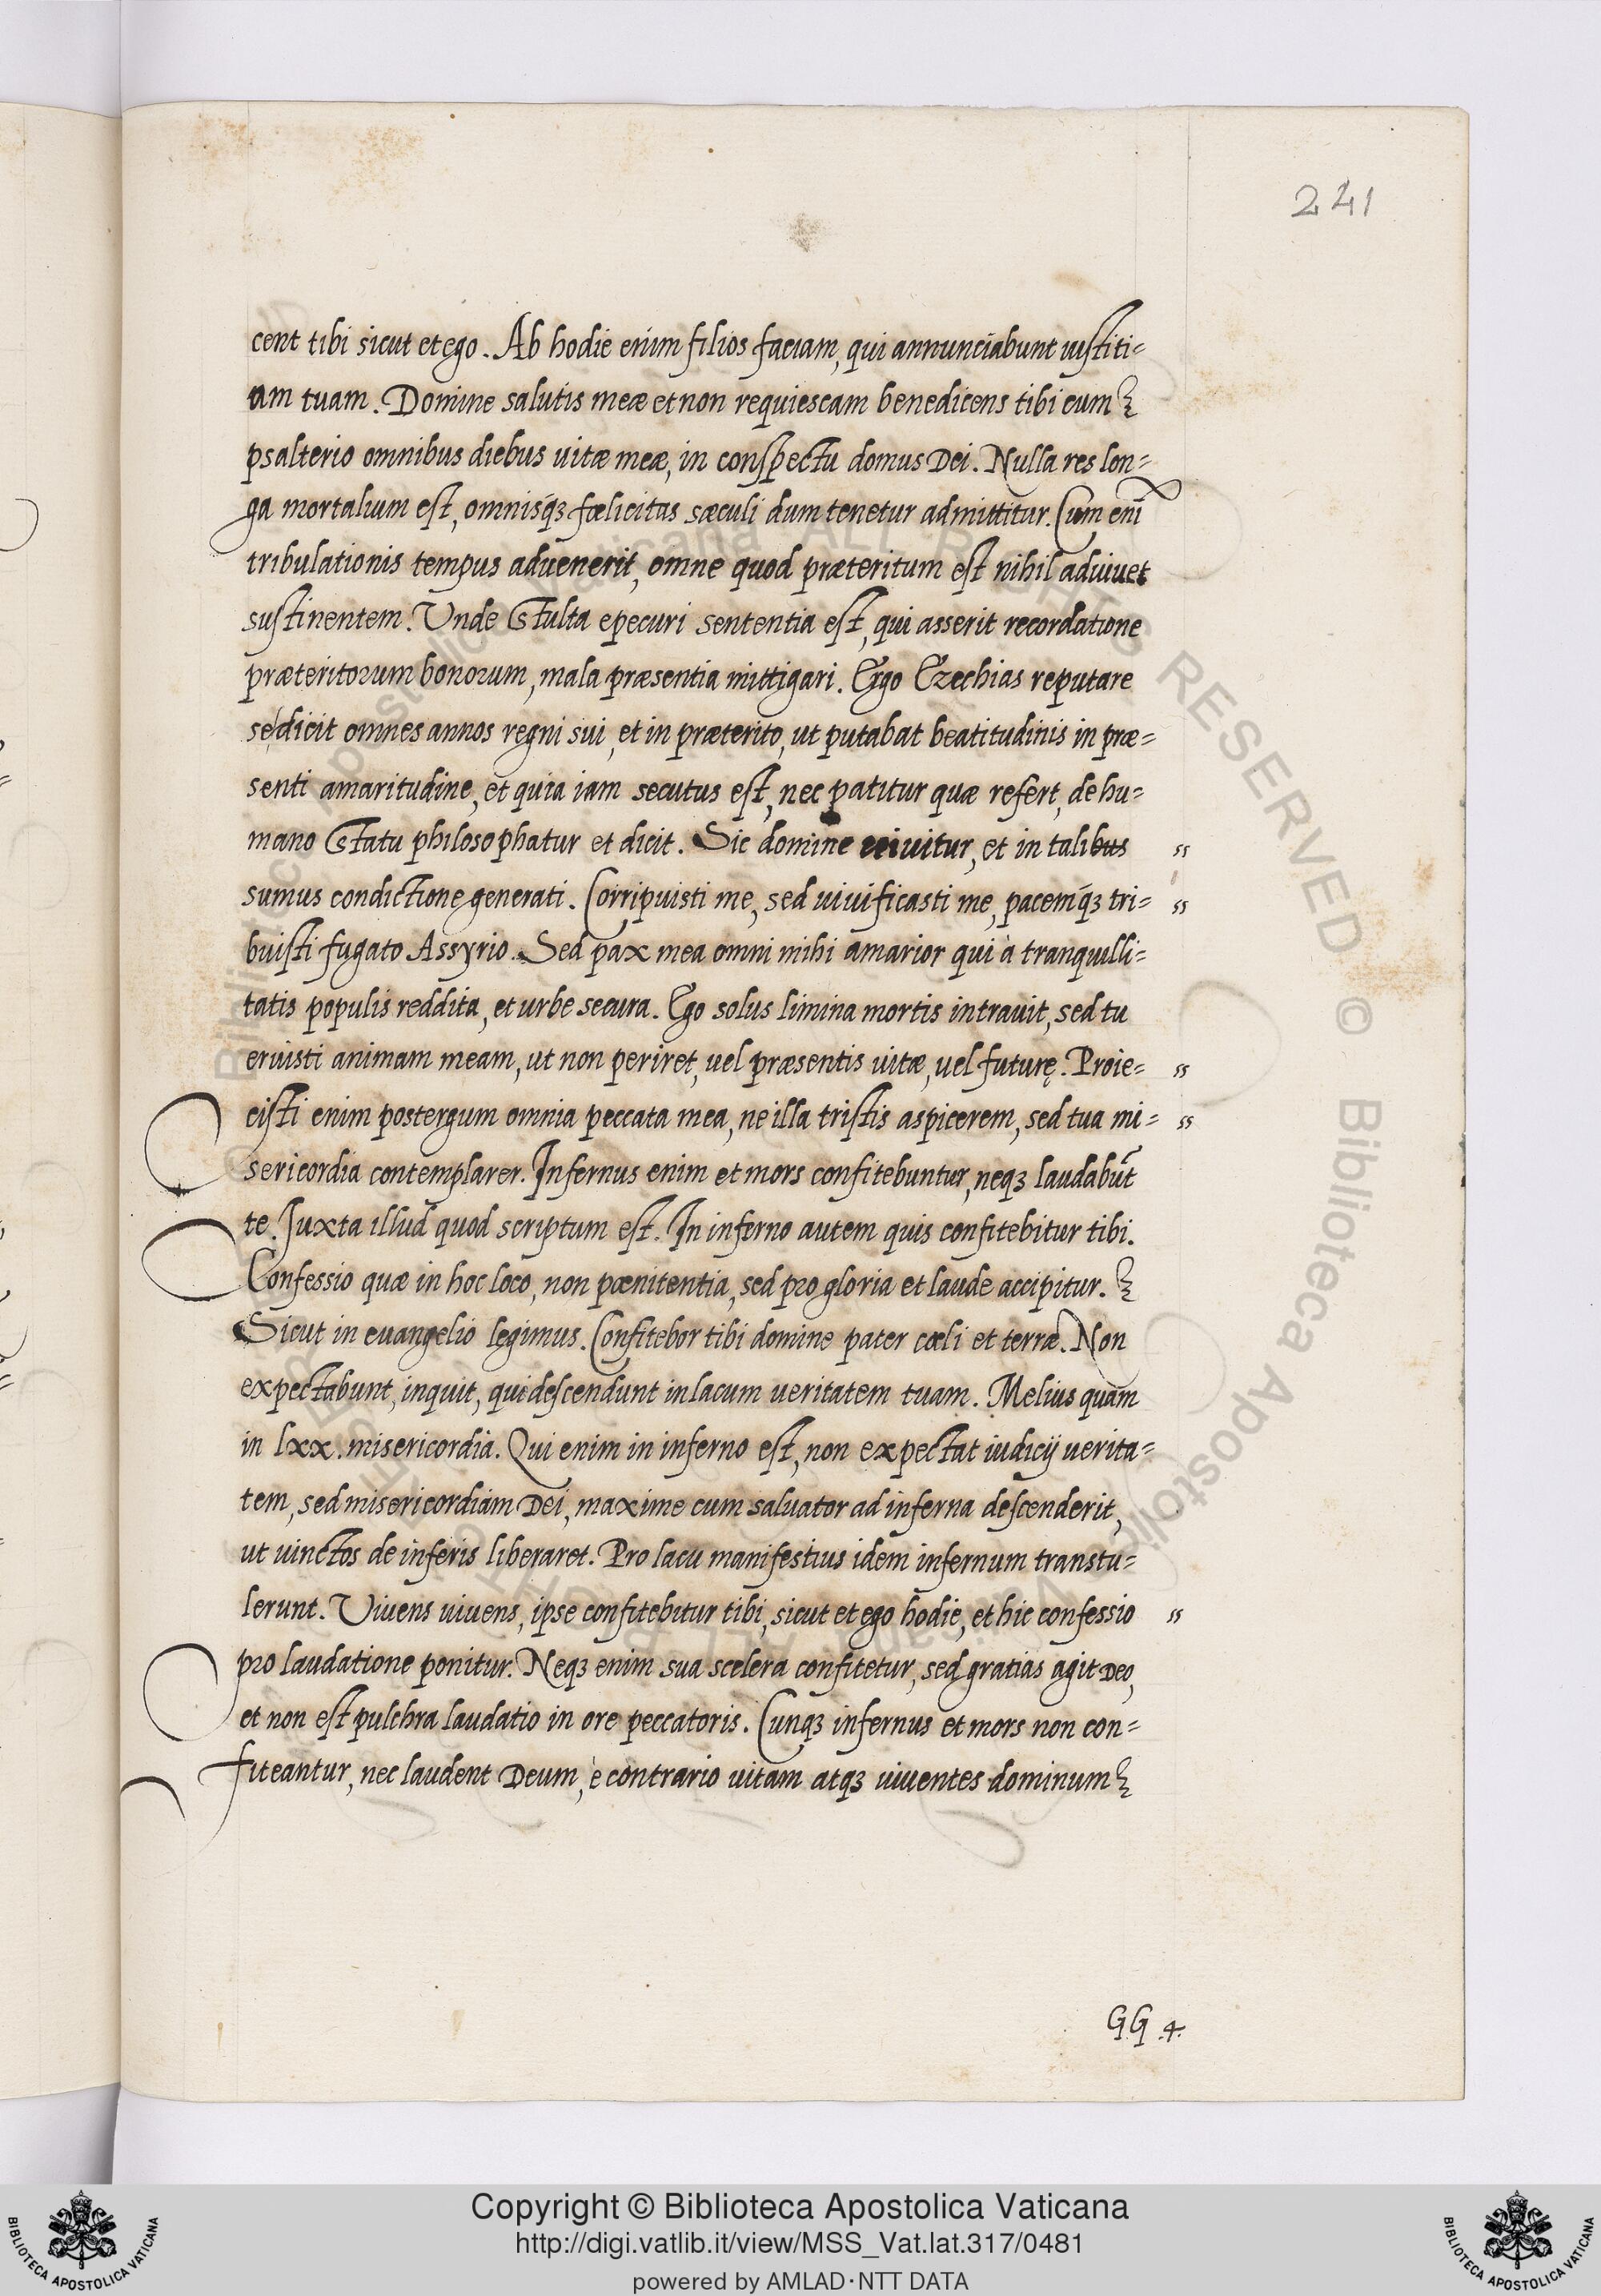 241
cent tibi sicut et ego. Ab hodie enim filios faciam, qui annunciabunt iustiti=
am tuam. Domine salutis meæ et non requiescam benedicens tibi cum
psalterio omnibus diebus uitæ meæ, in conspectu domus Dei. Nulla res lon=
ga mortalium est, omnisq́ꝫ fœlicitas sæculi dum tenetur admittitur. Cum enī
tribulationis tempus aduenerit, omne quod præteritum est nihil adiuuet
sustinentem. Unde stulta epecuri sententia est, qui asserit recordatione
præteritorum bonorum, mala præsentia mittigari. Ergo Ezechias reputare
se dicit omnes annos regni sui, et in præterito, ut putabat beatitudinis in præ=
senti amaritudine, et quia iam secutus est, nec patitur quæ refert, de hu=
mano statu philosophatur et dicit. Sic domine uiuitur, et in talibus
sumus condictione generati. Corripuisti me, sed uiuificasti me, pacemq́ꝫ tri=
buisti fugato Assyrio. Sed pax mea omni mihi amarior qui à tranquilli=
tatis populis reddita, et urbe secura. Ego solus limina mortis intrauit, sed tu
eruisti animam meam, ut non periret, uel præsentis uitæ, uel futurę. Proie=
cisti enim postergum omnia peccata mea, ne illa tristis aspicerem, sed tua mi=
sericordia contemplarer. Infernus enim et mors confitebuntur, neqꝫ laudabūt
te. Juxta illud quod scriptum est. In inferno autem quis confitebitur tibi.
Confessio quæ in hoc loco, non pœnitentia, sed pro gloria et laude accipitur.
Sicut in euangelio legimus. Confitebor tibi domine pater cœli et terræ. Non
expectabunt, inquit, qui descendunt in lacum ueritatem tuam. Melius quàm
in lxx. misericordia. Qui enim in inferno est, non expectat iudicij uerita=
tem, sed misericordiam Dei, maxime cum saluator ad inferna descenderit,
ut uinctos de inferis liberaret. Pro lacu manifestius idem infernum transtu=
lerunt. Viuens uiuens, ipse confitebitur tibi, sicut et ego hodie, et hic confessio
pro laudatione ponitur. Neqꝫ enim sua scelera confitetur, sed gratias agit Deo,
et non est pulchra laudatio in ore peccatoris. Cunqꝫ infernus et mors non con=
fiteantur, nec laudent Deum, è contrario uitam atqꝫ uiuentes dominum
GG .4.
Copyright © Biblioteca Apostolica Vaticana
http://digi.vatlib.it/view/MSS_Vat.lat.317/0481
powered by AMLAD·NTT DATA
BIBLIOTECA APOSTOLICA VATICANA
BIBLIOTECA APOSTOLICA VATICANA